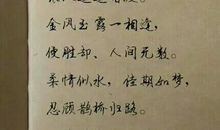 金风玉露一相逢,
便胜却、人间无数。
柔情似水,佳期如梦,
忍顾鹊桥归路。